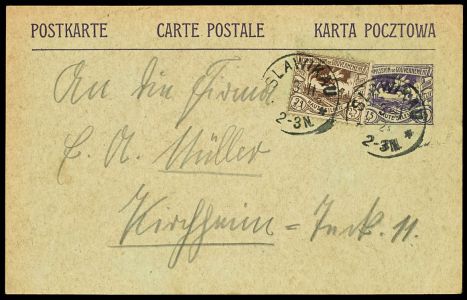 POSTKARTE CARTE POSTALE KARTA POCZTOWA
SLAWIKAU
2-3N.
2-3N.
An die Firma
C. A. Müller
Kirchheim-Teck 11.